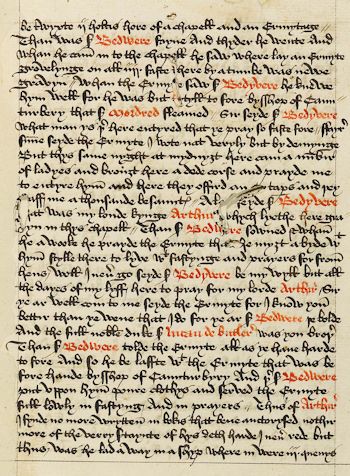 be twyxte ij hottis hore of a chapell and an Ermytage
Than was sr Bedwere fayne and thyder he wente And
whan he cam in to the chapell he saw where lay an Ermyte
grovelynge on all iiij faste there by a tumbe was newe
gravyn / whan the Ermyte saw sr Bedwere he knewe
hym well for he was but lytyll to fore bysshop of Caun
turbery that sr Mordred fleamed sir seyde sr Bedyvere
what man ys there entyred that ye pray so faste fore /
sunne seyde the Ermyte I wote nat veryly but by demynge
But thys same nyght at mydnyght here cam a numbir
of ladyes and brought here a dede corse and prayde me
to entyre hym and here they offird an C tapers and
gaff me a thousande besauntes Alas seyde sr Bedyvere
that was my lorde kynge Arthur whych lyethe here gra
vyn in thys chapell Than sr Bedwere sowned &
he awooke he prayde the Ermyte that he myght abyde wt
hym stylle there to lyve wt fastynge and prayers for from
hens woll I never go seyde sr Bedyvere be my wyll but all
the dayes of my lyff here to pray for my lorde Arthur Sir
ye ar wellcom to me seyde the Ermyte for I know you
bettir than ye wene that I do for ye ar sr Bedwere
and the full noble duke sr Lucan de butler was you brothir
Than sr Bedwere tolde the Ermyte all as ye have harde
to fore and so he belaffte wt the Ermyte that was be
fore hande bysshop of Caunturbyry And there sr Bedwere
put uppon hym poure clothys and served the Ermyte
full lowly in fastyng and in prayers Thus of Arthur
I fynde no more wrytten in bokis that bene auctorysed nothir
more of the verry sertaynte of hys deth harde I never rede but
thus was he lad a way in a shyp where in were iij quenys